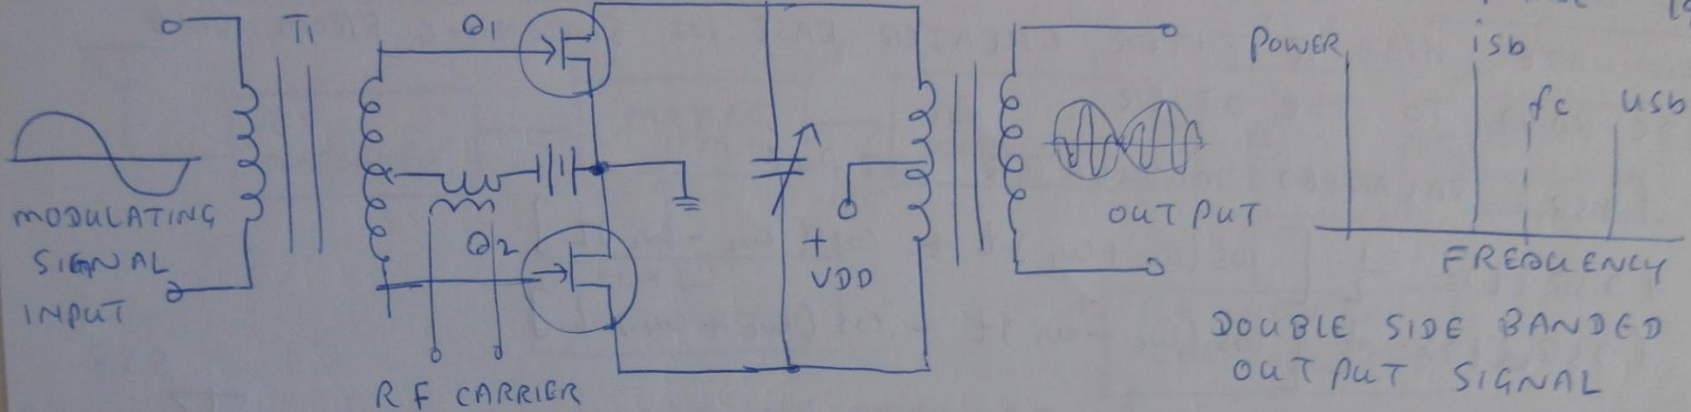 T1
Q1
MODULATING
SIGNAL
INPUT
Q2
RF CARRIER
+
VDD
OUTPUT
POWER
isb
fc
usb
FREQUENCY
DOUBLE SIDE BANDED
OUTPUT SIGNAL